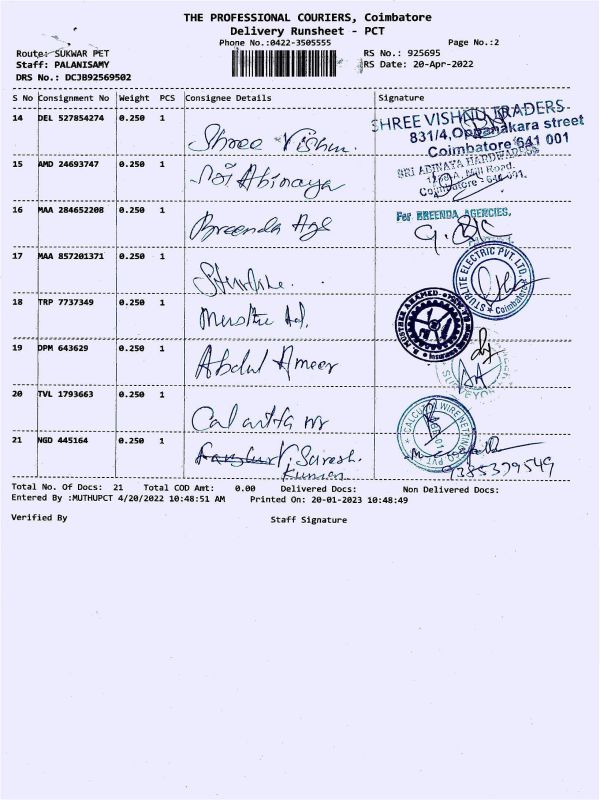 THE PROFESSIONAL COURIERS, Coimbatore
Delivery Runsheet - PCT
Phone No.:0422-3505555
Page No.:2
Route: SUKWAR PET
RS No.: 925695
Staff: PALANISAMY
RS Date: 20-Apr-2022
DRS No.: DCJB92569502
S No Consignment No Weight PCS Consignee Details Signature
14 DEL 527854274 0.250 1 Shree Vishnu.
SHREE VISHNU TRADERS
831/4, Oppanakara street
Coimbatore 641 001
15 AMD 24693747 0.250 1 Sri Abinaya
SRI ADINAYA HARDWARES
Mill Road.
Coimbatore - 641 001.
16 MAA 284652208 0.250 1 Breenda Ags
For BREENDA AGENCIES,
17 MAA 857201371 0.250 1 Sturlite.
STURLITE ELECTRIC PVT. LTD.
Coimbatore
18 TRP 7737349 0.250 1
19 DPM 643629 0.250 1 Abdul Ameer
SURVEYOR
20 TVL 1793663 0.250 1
21 NGD 445164 0.250 1 Suresh.
Kumar
9385379549
Total No. Of Docs: 21 Total COD Amt: 0.00 Delivered Docs: Non Delivered Docs:
Entered By :MUTHUPCT 4/20/2022 10:48:51 AM Printed On: 20-01-2023 10:48:49
Verified By
Staff Signature